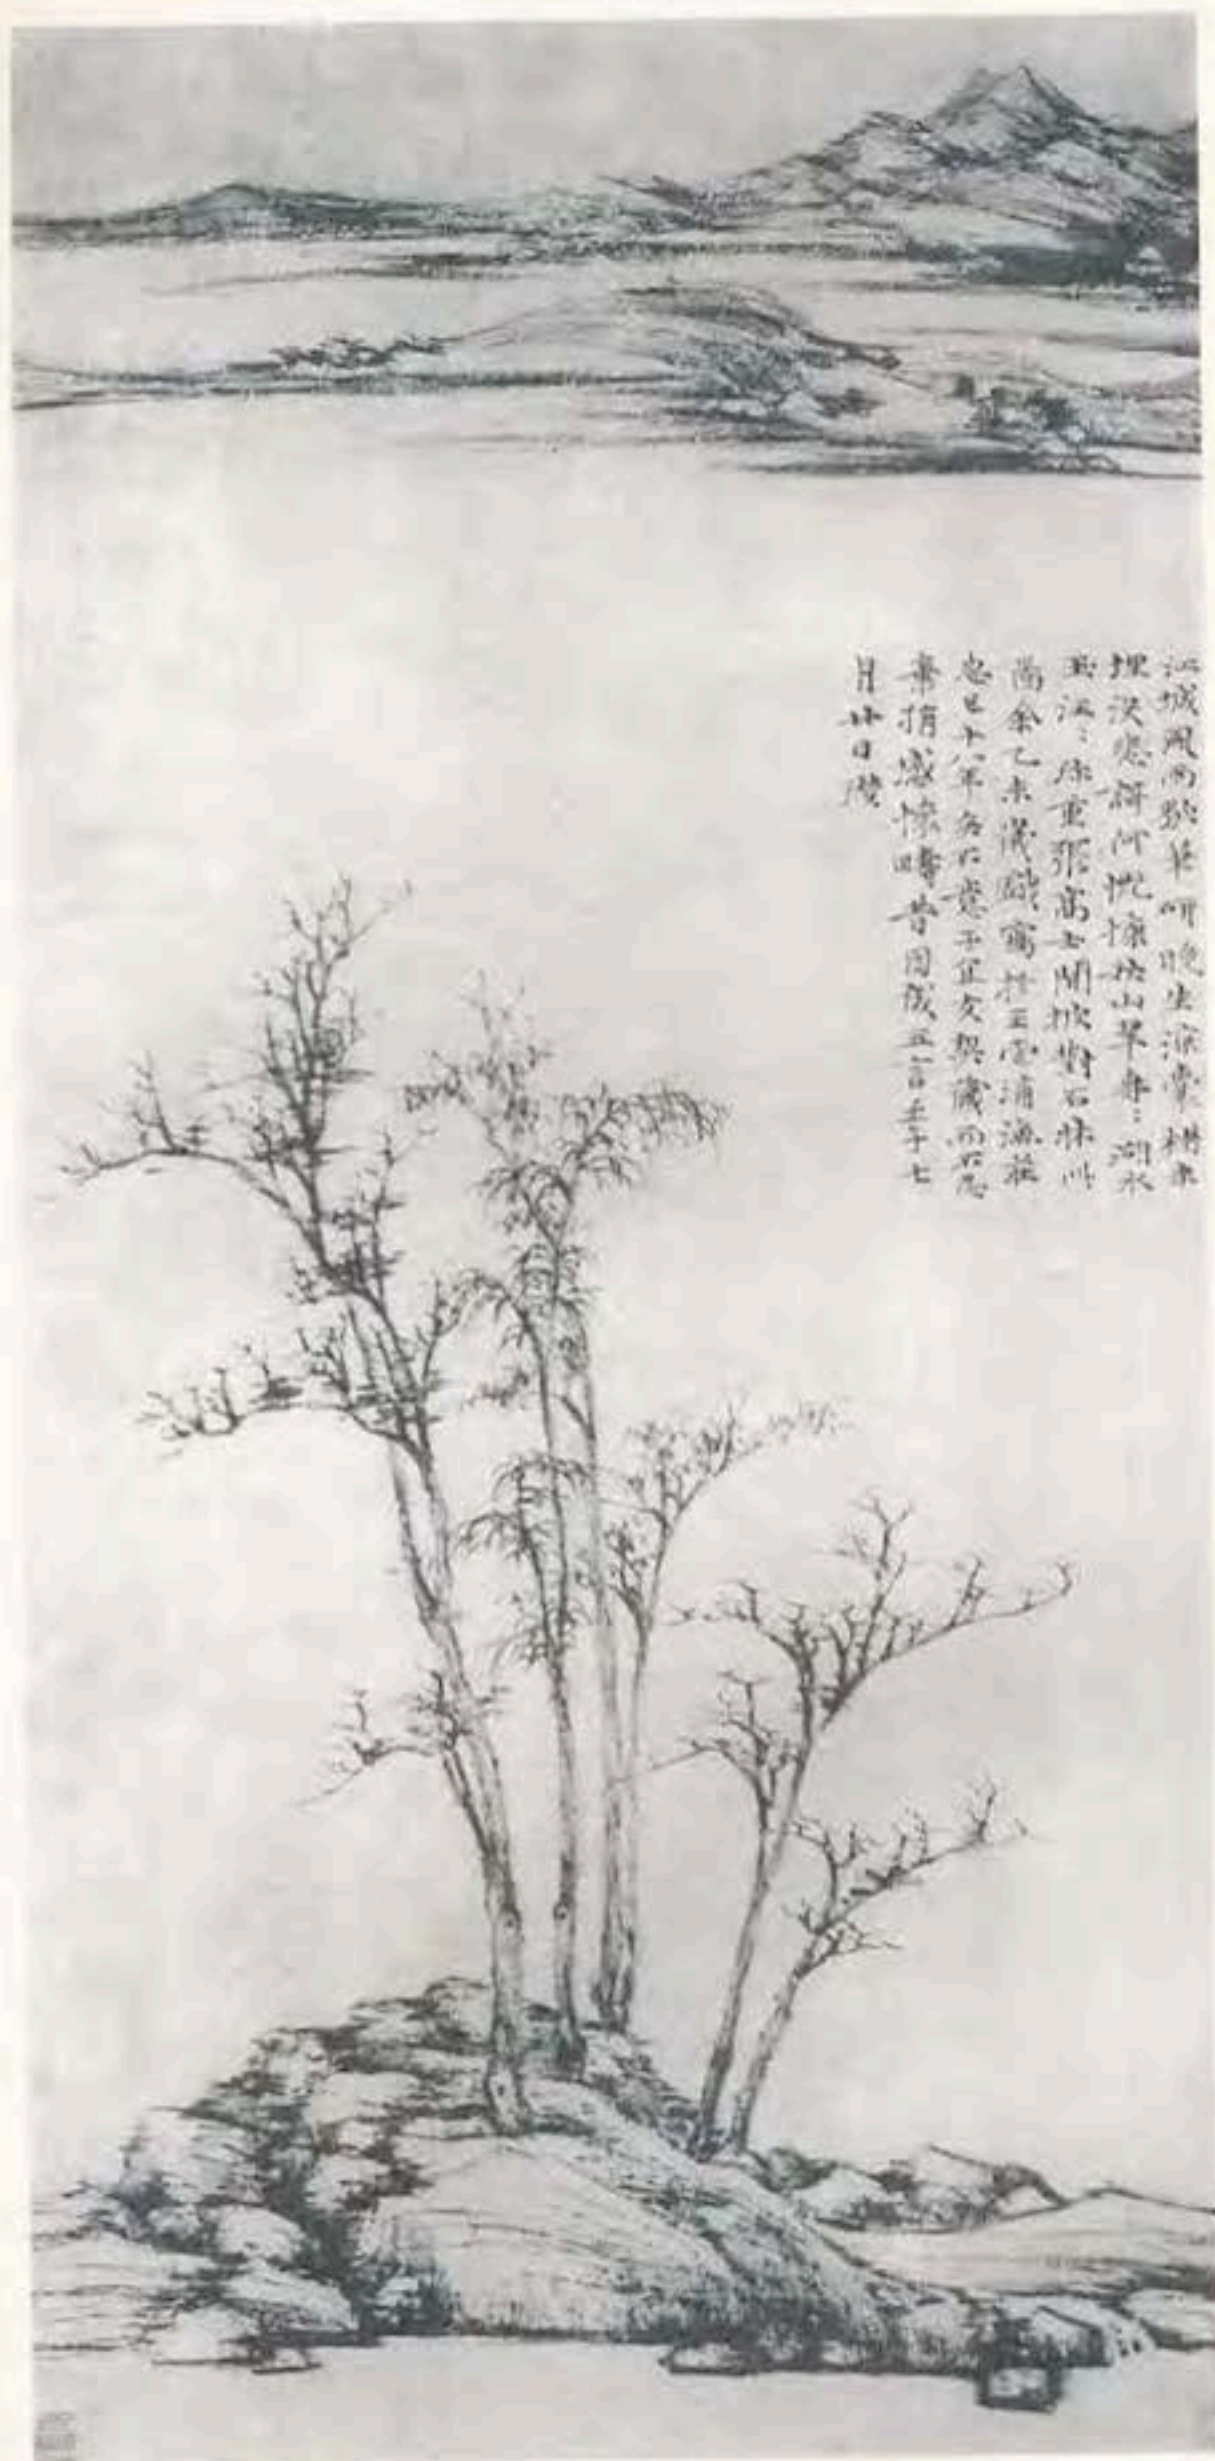 江城風雨歇筆研晚生涼囊楮未
埋没悲歌何慨慷秋山翠冉〻湖水
玉汪〻珍重張高士閒披對石牀此
圖余乙未歲戲寫於王雲浦漁莊
忽已十八年矣不意子宜友契藏而不忍
棄捐感懷疇昔因成五言壬子七
月廿日瓚